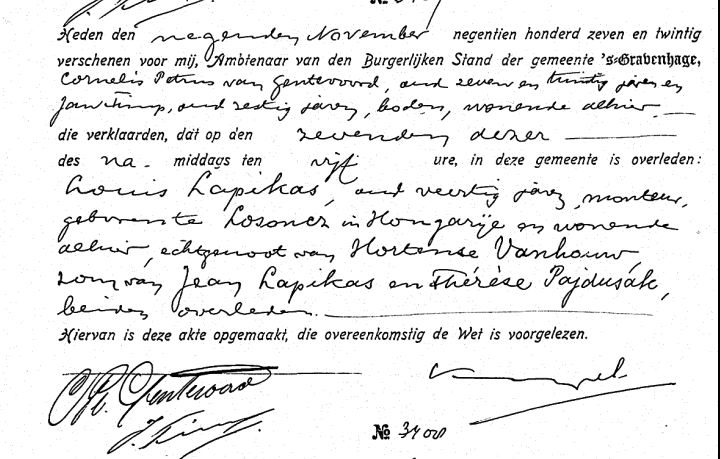 Heden den negenden November negentien honderd zeven en twintig
verschenen voor mij, Ambtenaar van den Burgerlijken Stand der gemeente 's-Gravenhage,
Cornelis Petrus van Gentevoord, oud zeven en twintig jaren en
Jan Kimp, oud zestig jaren, boden, wonende alhier
die verklaarden, dat op den zevenden dezer
des na- middags ten vijf ure, in deze gemeente is overleden:
Louis Lapikas, oud veertig jaren, monteur,
geboren te Losoncz in Hongarije en wonende
alhier, echtgenoot van Hortense Vanhouw,
zoon van Jean Lapikas en Thérèse Pajdusák,
beiden overleden.
Hiervan is deze akte opgemaakt, die overeenkomstig de Wet is voorgelezen.
No 3408